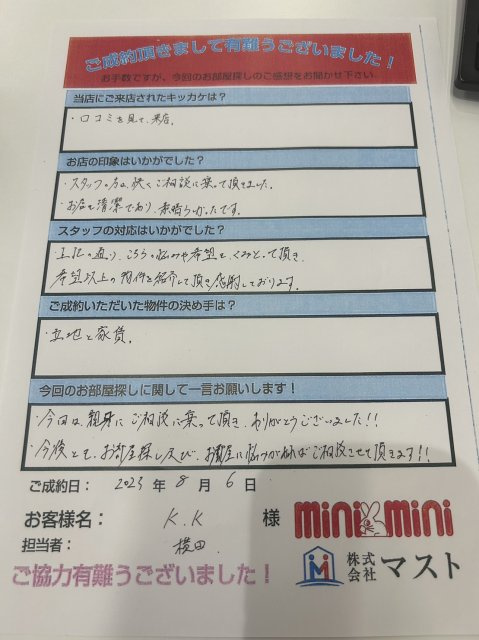 ご成約頂きまして有難うございました！
お手数ですが、今回のお部屋探しのご感想をお聞かせ下さい。
当店にご来店されたキッカケは？
・口コミを見て、来店。
お店の印象はいかがでした？
・スタッフの方は、快くご相談に乗って頂きました。
・お店も清潔であり、素晴らしかったです。
スタッフの対応はいかがでした？
・上記の通り、こちらの悩みや希望を、くみとって頂き、
希望以上の物件を紹介して頂き感謝しております。
ご成約いただいた物件の決め手は？
・立地と家賃。
今回のお部屋探しに関して一言お願いします！
・今回は、親身にご相談に乗って頂き、ありがとうございました！！
・今後とも、お部屋探し及び、お部屋に悩みがあればご相談させて頂きます！！
ご成約日： 2023 年 8 月 6 日
お客様名： K.K 様
担当者： 横田
ご協力有難うございました！
mini mini
株式会社 マスト